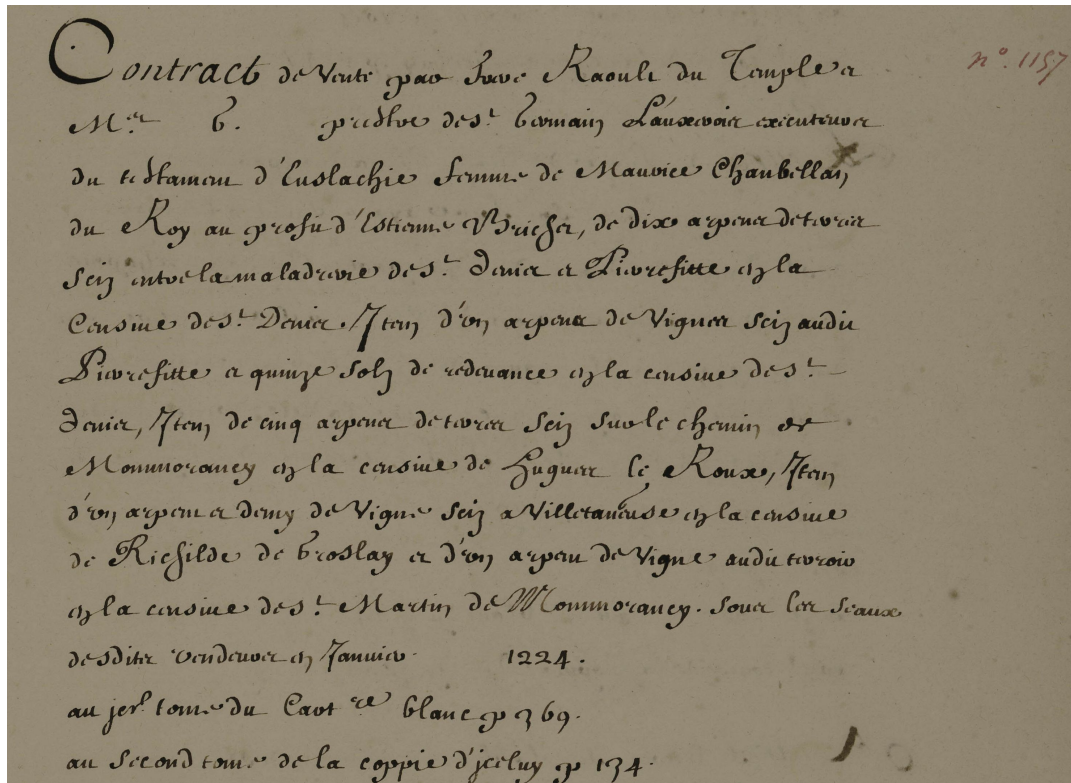 Contract de Vente par frere Raoul du Temple et
Mre. G. prestre de St. Germain L'auxerrois executeurs
du testament d'Eustachie femme de Maurice Chanbellan
du Roy au profit d'Estienne Bricher, de dix arpens de terres
seiz entre la maladrerie de St. Denis et Pierrefitte en la
Censive de St. Denis. Item d'un arpent de Vignes seiz audit
Pierrefitte a quinze solz de redevance en la censive de St.
Denis, Item de cinq arpens de terres seiz sur le chemin de
Montmorancy en la censive de Hugues le Roux, Item
d'un arpent et demy de Vigne seiz a Villetaneuse en la censive
de Richilde de Groslay et d'un arpent de Vigne audit terroir
en la censive de St. Martin de Montmorancy. Sous les seaux
desdits vendeurs en Janvier 1224.
au jer. tome du Cartre blanc p 369.
au second tome de la coppie d'jceluy p 134.
n°. 1157